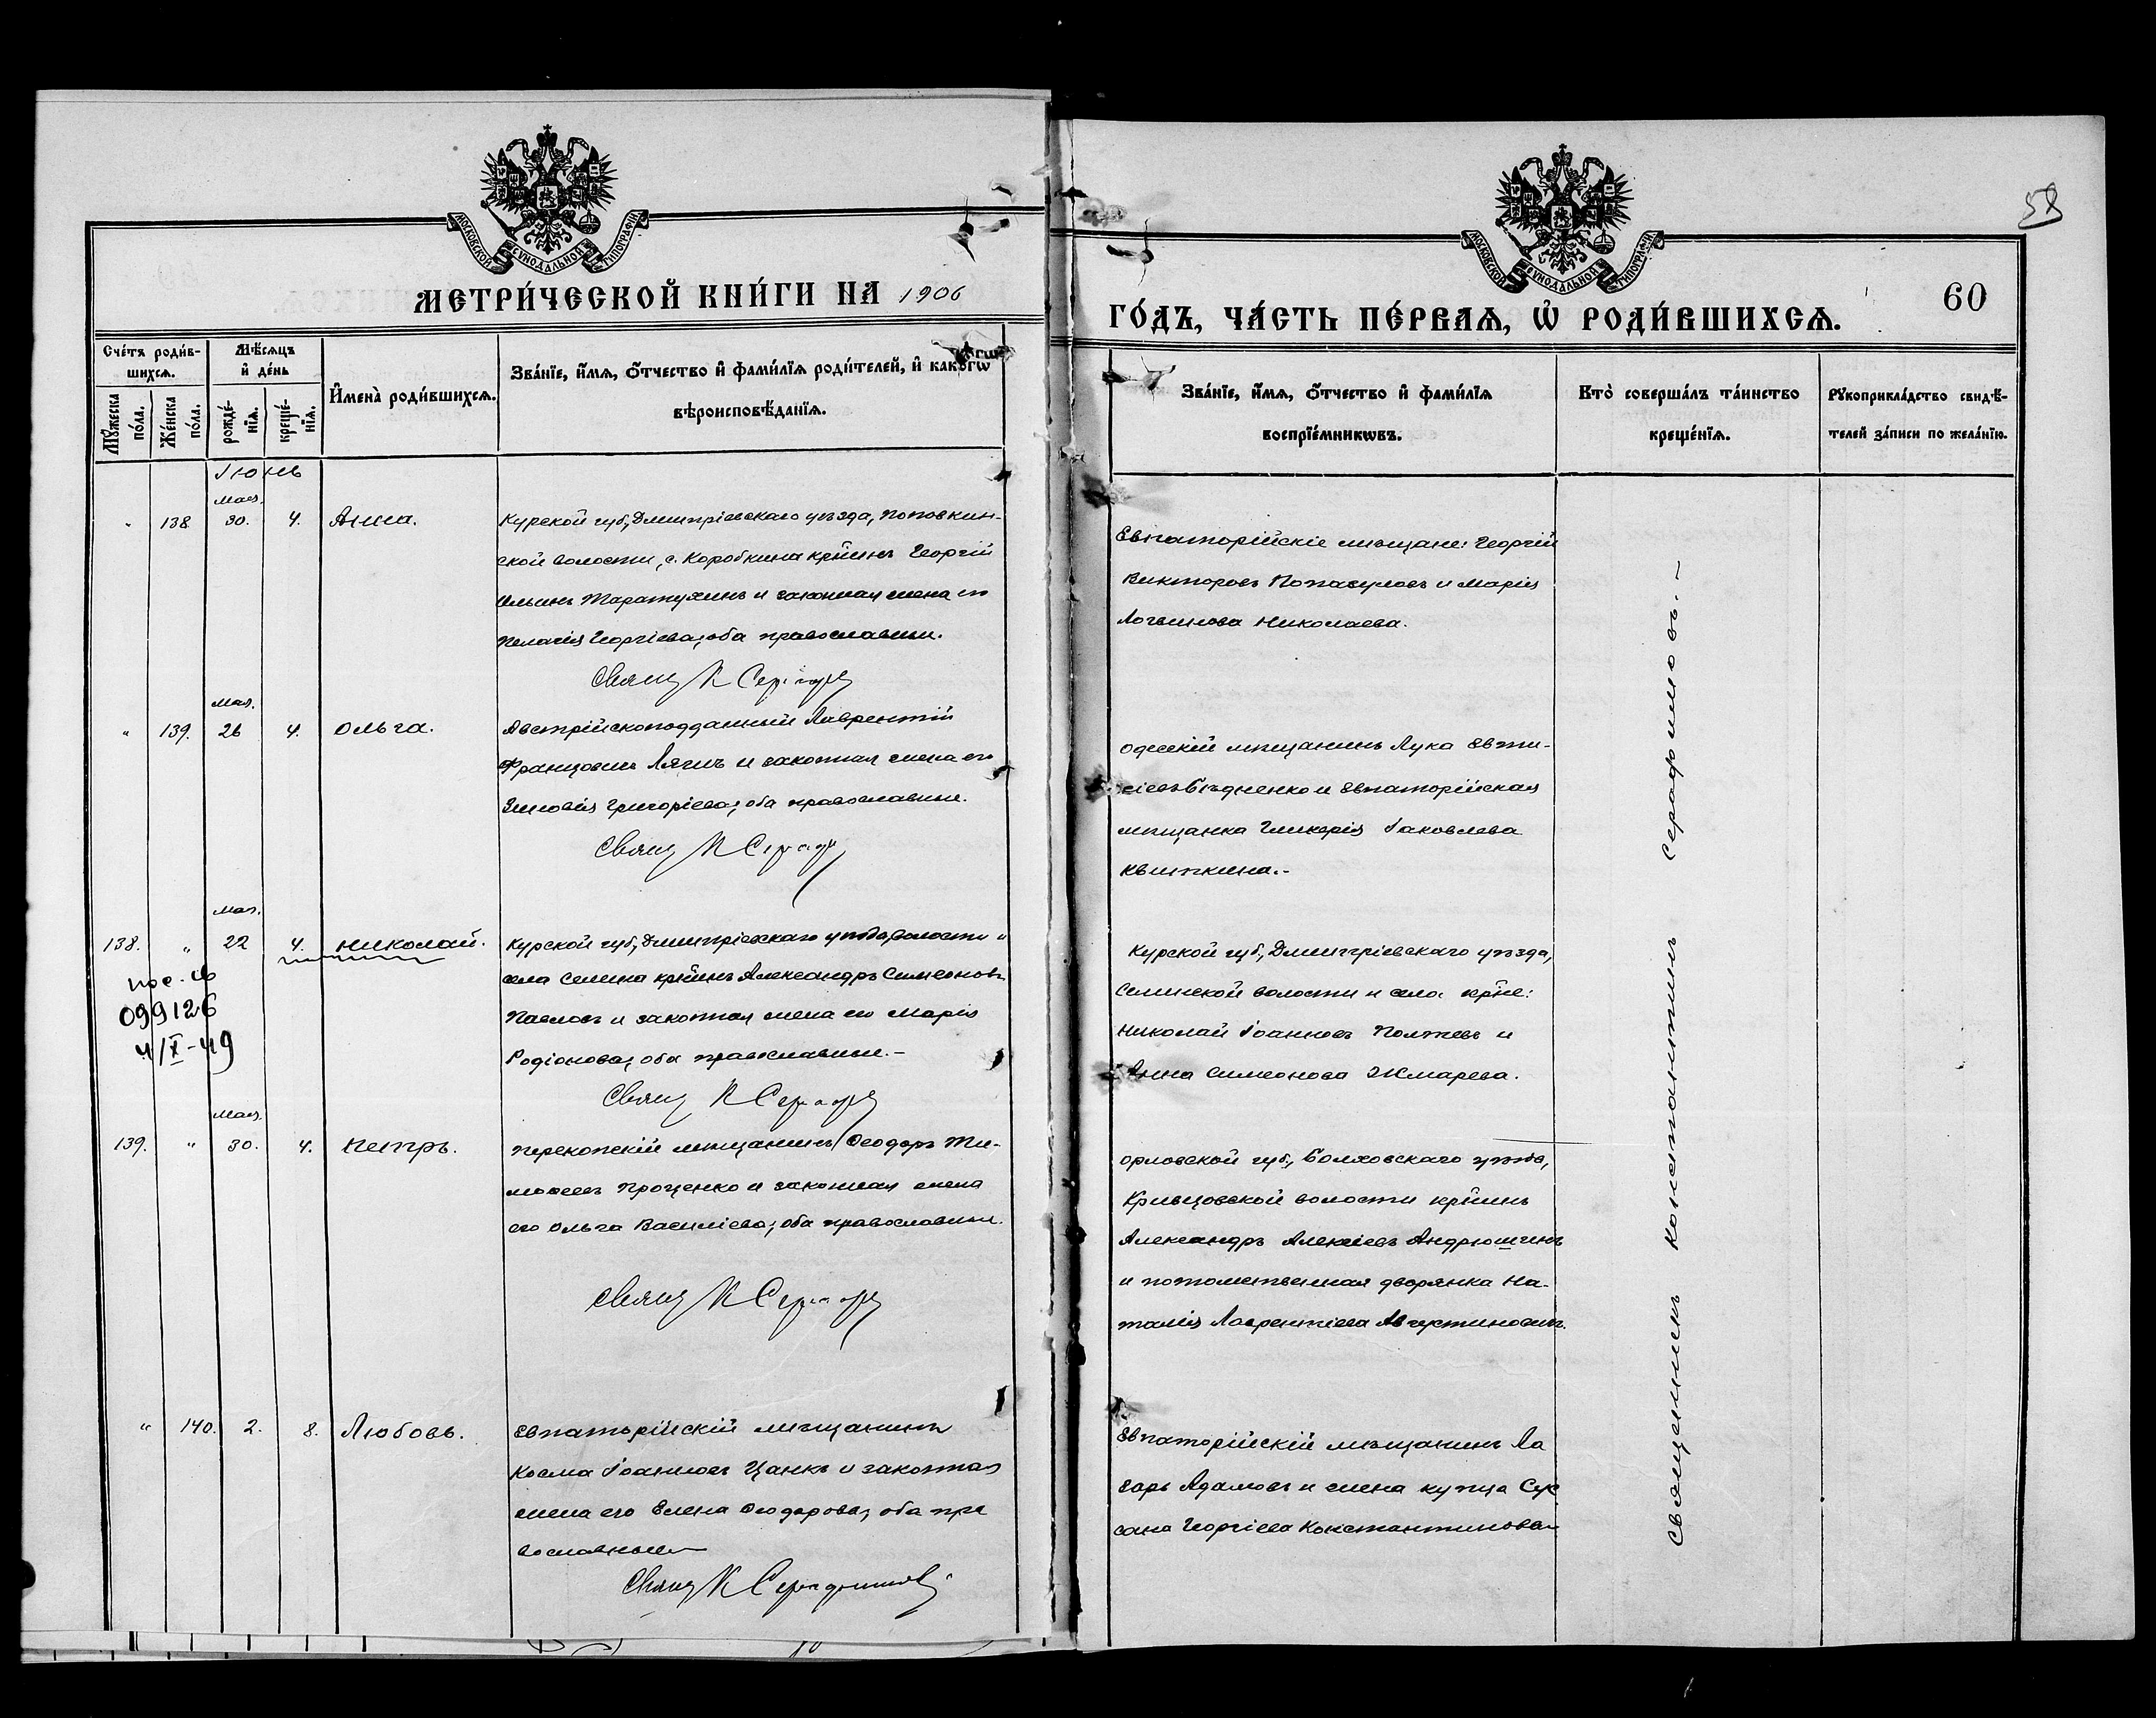 МОСКОВСКОЙ СѴНОДАЛЬНОЙ ТИПОГРАФІИ
МЕТРИ́ЧЕСКОЙ КНИ́ГИ НА 1906
Сче́тъ роди́в-
шихсѧ.
Мѣ́сѧцъ
и҆ де́нь
И҆мена̀ роди́вшихсѧ.
Зва́нїе, и҆́мѧ, ѻ҆́тчество и҆ фами́лїѧ роди́телей, и҆ како́гѡ
вѣроисповѣ́данїѧ.
Мꙋ́жеска
по́ла.
Же́нска
по́ла.
рожде́-
нїѧ.
креще́-
нїѧ.
Іюнь
мая.
" 138 30. 4. Анна.
Курской губ., Дмитріевскаго уѣзда, Поповкин-
ской волости, с. Коробкина кр҃нинъ Георгій
Ильинъ Таратухинъ и законная жена его
Пелагія Георгіева, оба православные.
Свящ К Серафи
мая.
" 139. 26 4. Ольга.
Австрійскоподданный Лаврентій
Францовичъ и законная жена его
Зиновія Григоріева, оба православные.
Свящ К Серафи
мая.
138. " 22 4. Николай.
Курской губ., Дмитріевскаго уѣзда, волости и
села Селина кр҃нинъ Александръ Симеоновъ
Павловъ и законная жена его Марія
Родіонова, оба православные.–
Свящ К Серафи
099126
4/X-49
мая.
139. " 30. 4. Петръ.
Перекопскій мѣщанинъ Ѳеодоръ Ти-
моѳеевъ Проценко и законная жена
его Ольга Василіева, оба православные.
Свящ К Серафи
" 140. 2. 8. Любовь.
Евпаторійскій мѣщанинъ
Косма Іоанновъ Цанкъ и законная
жена его Елена Ѳеодорова, оба пра
вославные
Свящ К Серафимовъ
58
МОСКОВСКОЙ СѴНОДАЛЬНОЙ ТИПОГРАФІИ
ГО́ДЪ, ЧА́СТЬ ПЕ́РВАѦ, Ѡ҆ РОДИ́ВШИХСѦ. 60
Зва́нїе, и҆́мѧ, ѻ҆́тчество и҆ фами́лїѧ
воспрїе́мникѡвъ.
Кто̀ соверша́лъ та́инство
креще́нїѧ.
Рꙋкоприкла́дство свидѣ́-
телей за́писи по жела́нїю.
Евпаторійскіе мѣщане: Георгій
Викторовъ и Марія
Логвинова Николаева.
Одесскій мѣщанинъ Лука Евти-
хіевъ Бѣдненко и Евпаторійская
мѣщанка Гликерія Іаковлева
Квиткина.–
Курской губ., Дмитріевскаго уѣзда,
Селинской волости и села кр҃не:
Николай Іоанновъ и
Анна Симеонова Жмарева.
Орловской губ., Болховскаго уѣзда,
Кривцовской волости кр҃нинъ
Александръ Алексіевъ Андрюшинъ
и потомственная дворянка На-
талія Лаврентіева Августиновичъ.
Евпаторійскій мѣщанинъ Ла
зарь Адамовъ и жена купца Сус
сана Георгіева Константинова
Священникъ Константинъ Серафимовъ.–